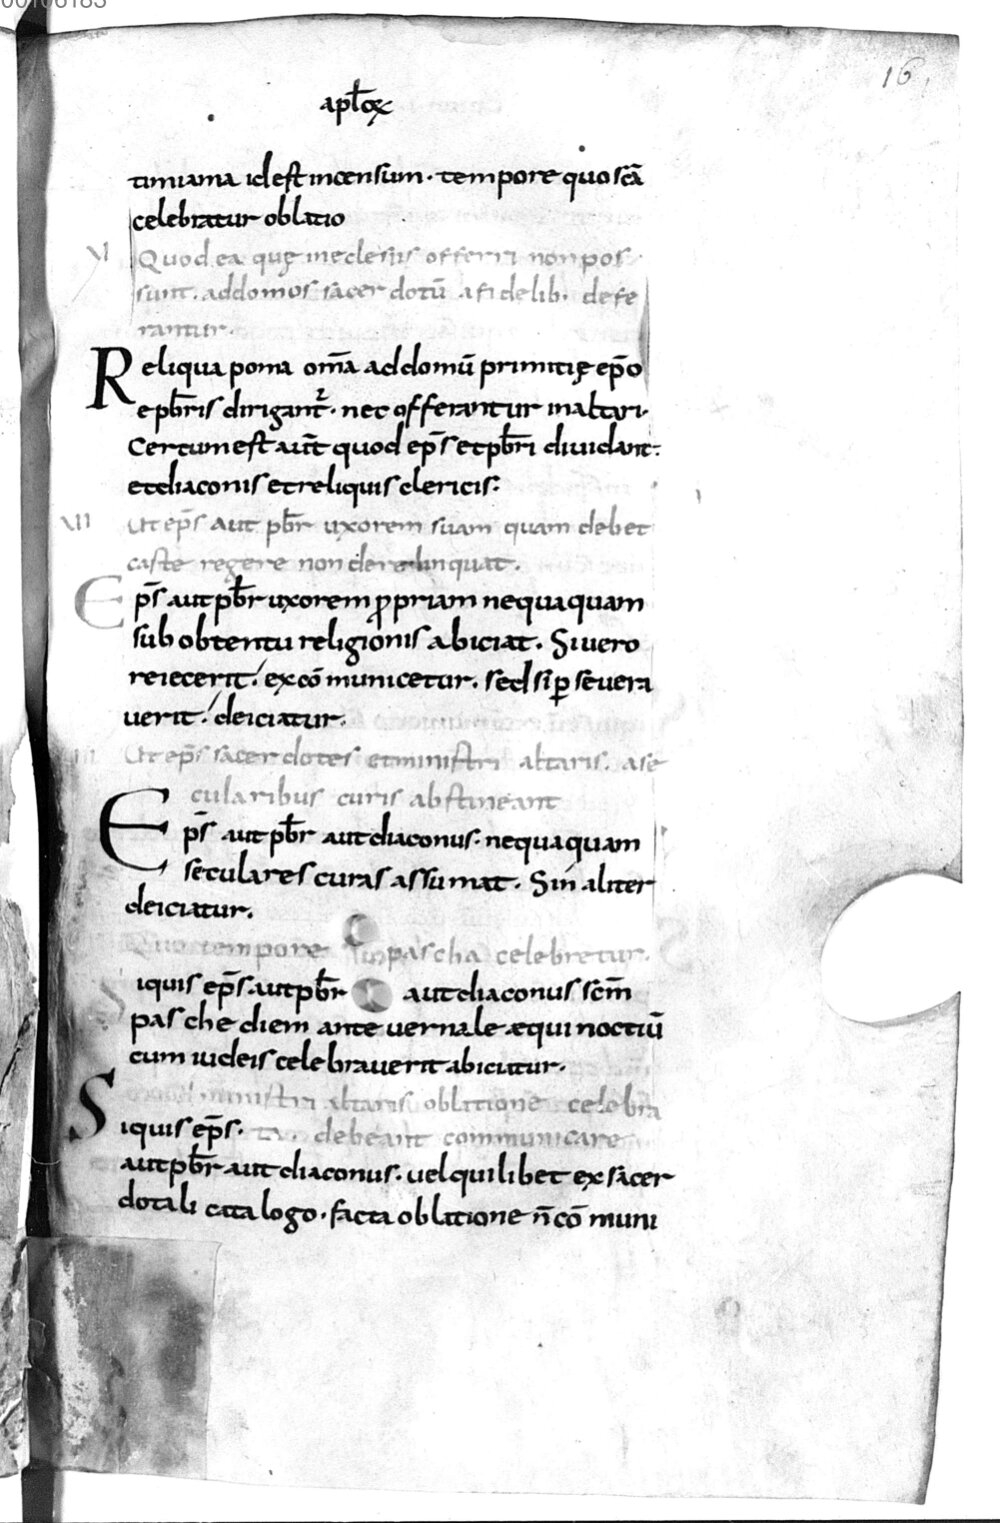 00106183
16
apłoꝝ
timiama id est incensum · tempore quo scā
celebratur oblatio
VI Quod ea quę in eclesiis offerri non pos
sunt · ad domos sacerdotū a fidelib· defe
rantur ·
Reliqua poma om̄a ad domū primitię ep̄o
et pb̄ris dirigant᷑ · nec offerantur in altari ·
Certum est aut̄ quod ep̄s et pb̄ri diuidant :
et diaconis et reliquis clericis :
VII Ut ep̄s aut pb̄r uxorem suam quam debet
caste regere non derelinquat ·
Ep̄s aut pb̄r uxorem ꝓpriam nequaquam
sub obtentu religionis abiciat · Si uero
reiecerit / excōmunicetur · sed si ꝑseuera
uerit / deiciatur ·
III Ut ep̄s sacerdotes et ministri altaris · a se
cularibus curis abstineant
Ep̄s aut pb̄r aut diaconus · nequaquam
seculares curas assumat · Sin aliter
deiciatur ·
Quo tempore pascha celebretur ·
Siquis ep̄s · aut pb̄r aut diaconus scm̄
pasche diem ante uernale æquinoctiū
cum iudeis celebrauerit abiciatur ·
ministri altaris oblatione celebra
Siquis ep̄s · ta · debeant communicare
aut pb̄r aut diaconus · uel quilibet ex sacer
dotali catalogo · facta oblatione n̄ cōmuni